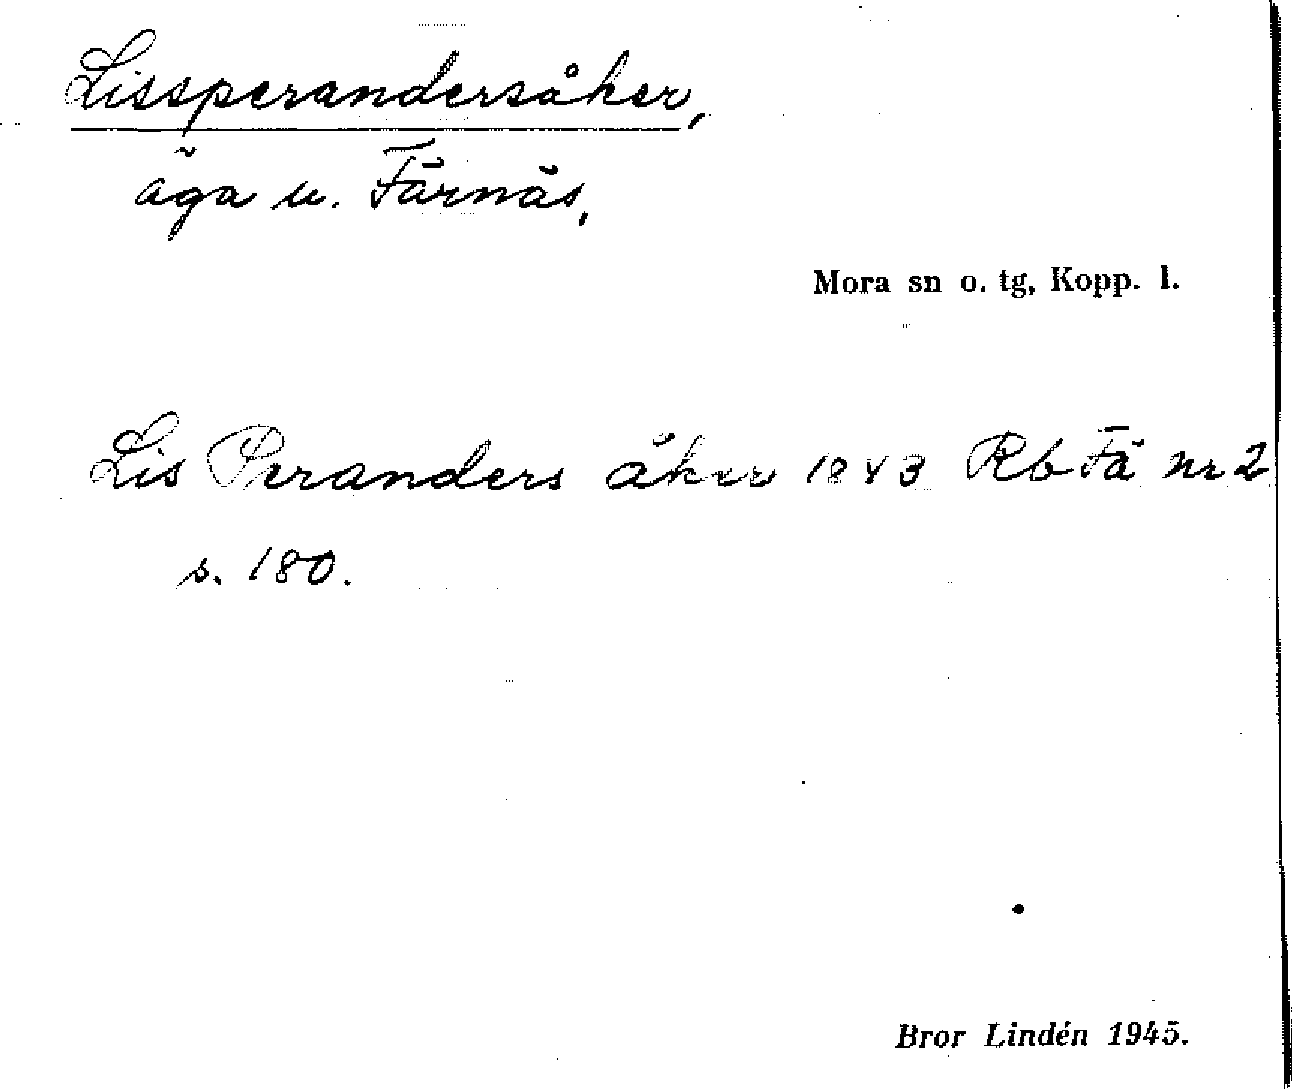 Lissperandersåker,
äga u. Färnäs,
Mora sn o. tg, Kopp. l.
Lis Peranders åker 1843 Rb Fä nr 2
s. 180.
Bror Lindén 1945.